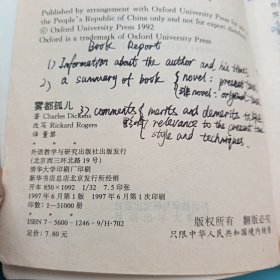 Published by arrangement with Oxford University Press
the People's Republic of China only and not for export
© Oxford University Press 1992
Oxford is a trademark of Oxford University Press
Book Report
1) Information about the author and his times
2) a summary of book { novel: present tense
非novel: original tense
雾都孤儿
3) comments { merits and demerits
relevance to the present time
style and techniques.
著 Charles Dickens
改写 Richard Rogers
译 董翠
外语教学与研究出版社出版发行
(北京西三环北路 19 号)
清华大学印刷厂印刷
新华书店总店北京发行所经销
开本 850×1092 1/32 7.5 印张
1997 年 6 月第 1 版 1997 年 6 月第 1 次印刷
印数:1—31000 册
ISBN 7-5600-1246-9/H·702
定价:7.80 元
版权所有 翻版必究
只限中华人民共和国境内销售